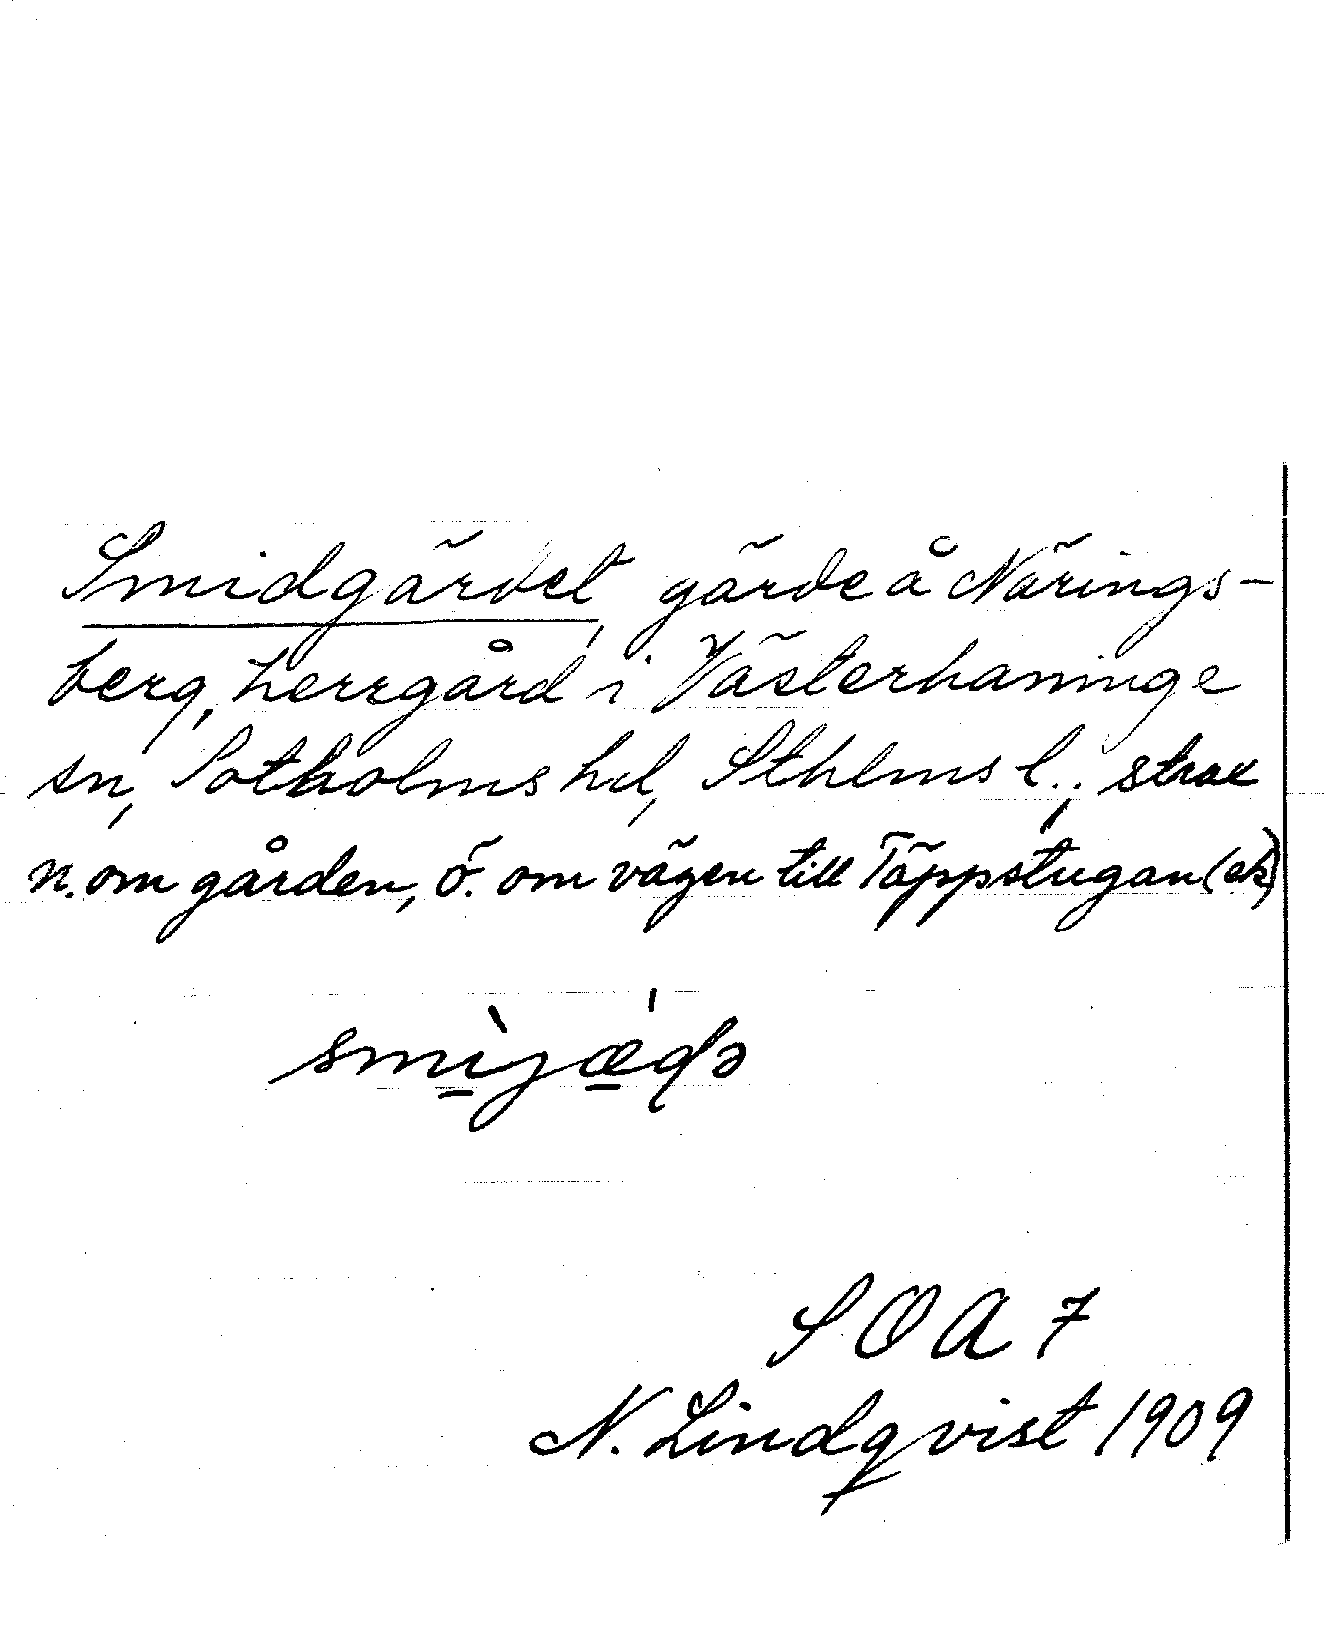 Smidgärdet, gärde å Närings-
berg, herrgård i Västerhaninge
sn, Sotholms hd, Sthlms l.; strax
n. om gården, ö. om vägen till Täppstugan (ek)
smìjæ̀ɖə
SOA 7
N. Lindqvist 1909